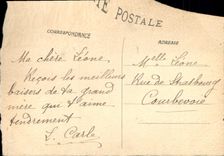 CARTE POSTALE
CORRESPONDANCE
ADRESSE
Ma chère Léone,
Reçois les meilleurs
baisers de ta grand
mère qui t'aime
tendrement
L. Carle
Melle Léone
Rue de Strasbourg
Courbevoie